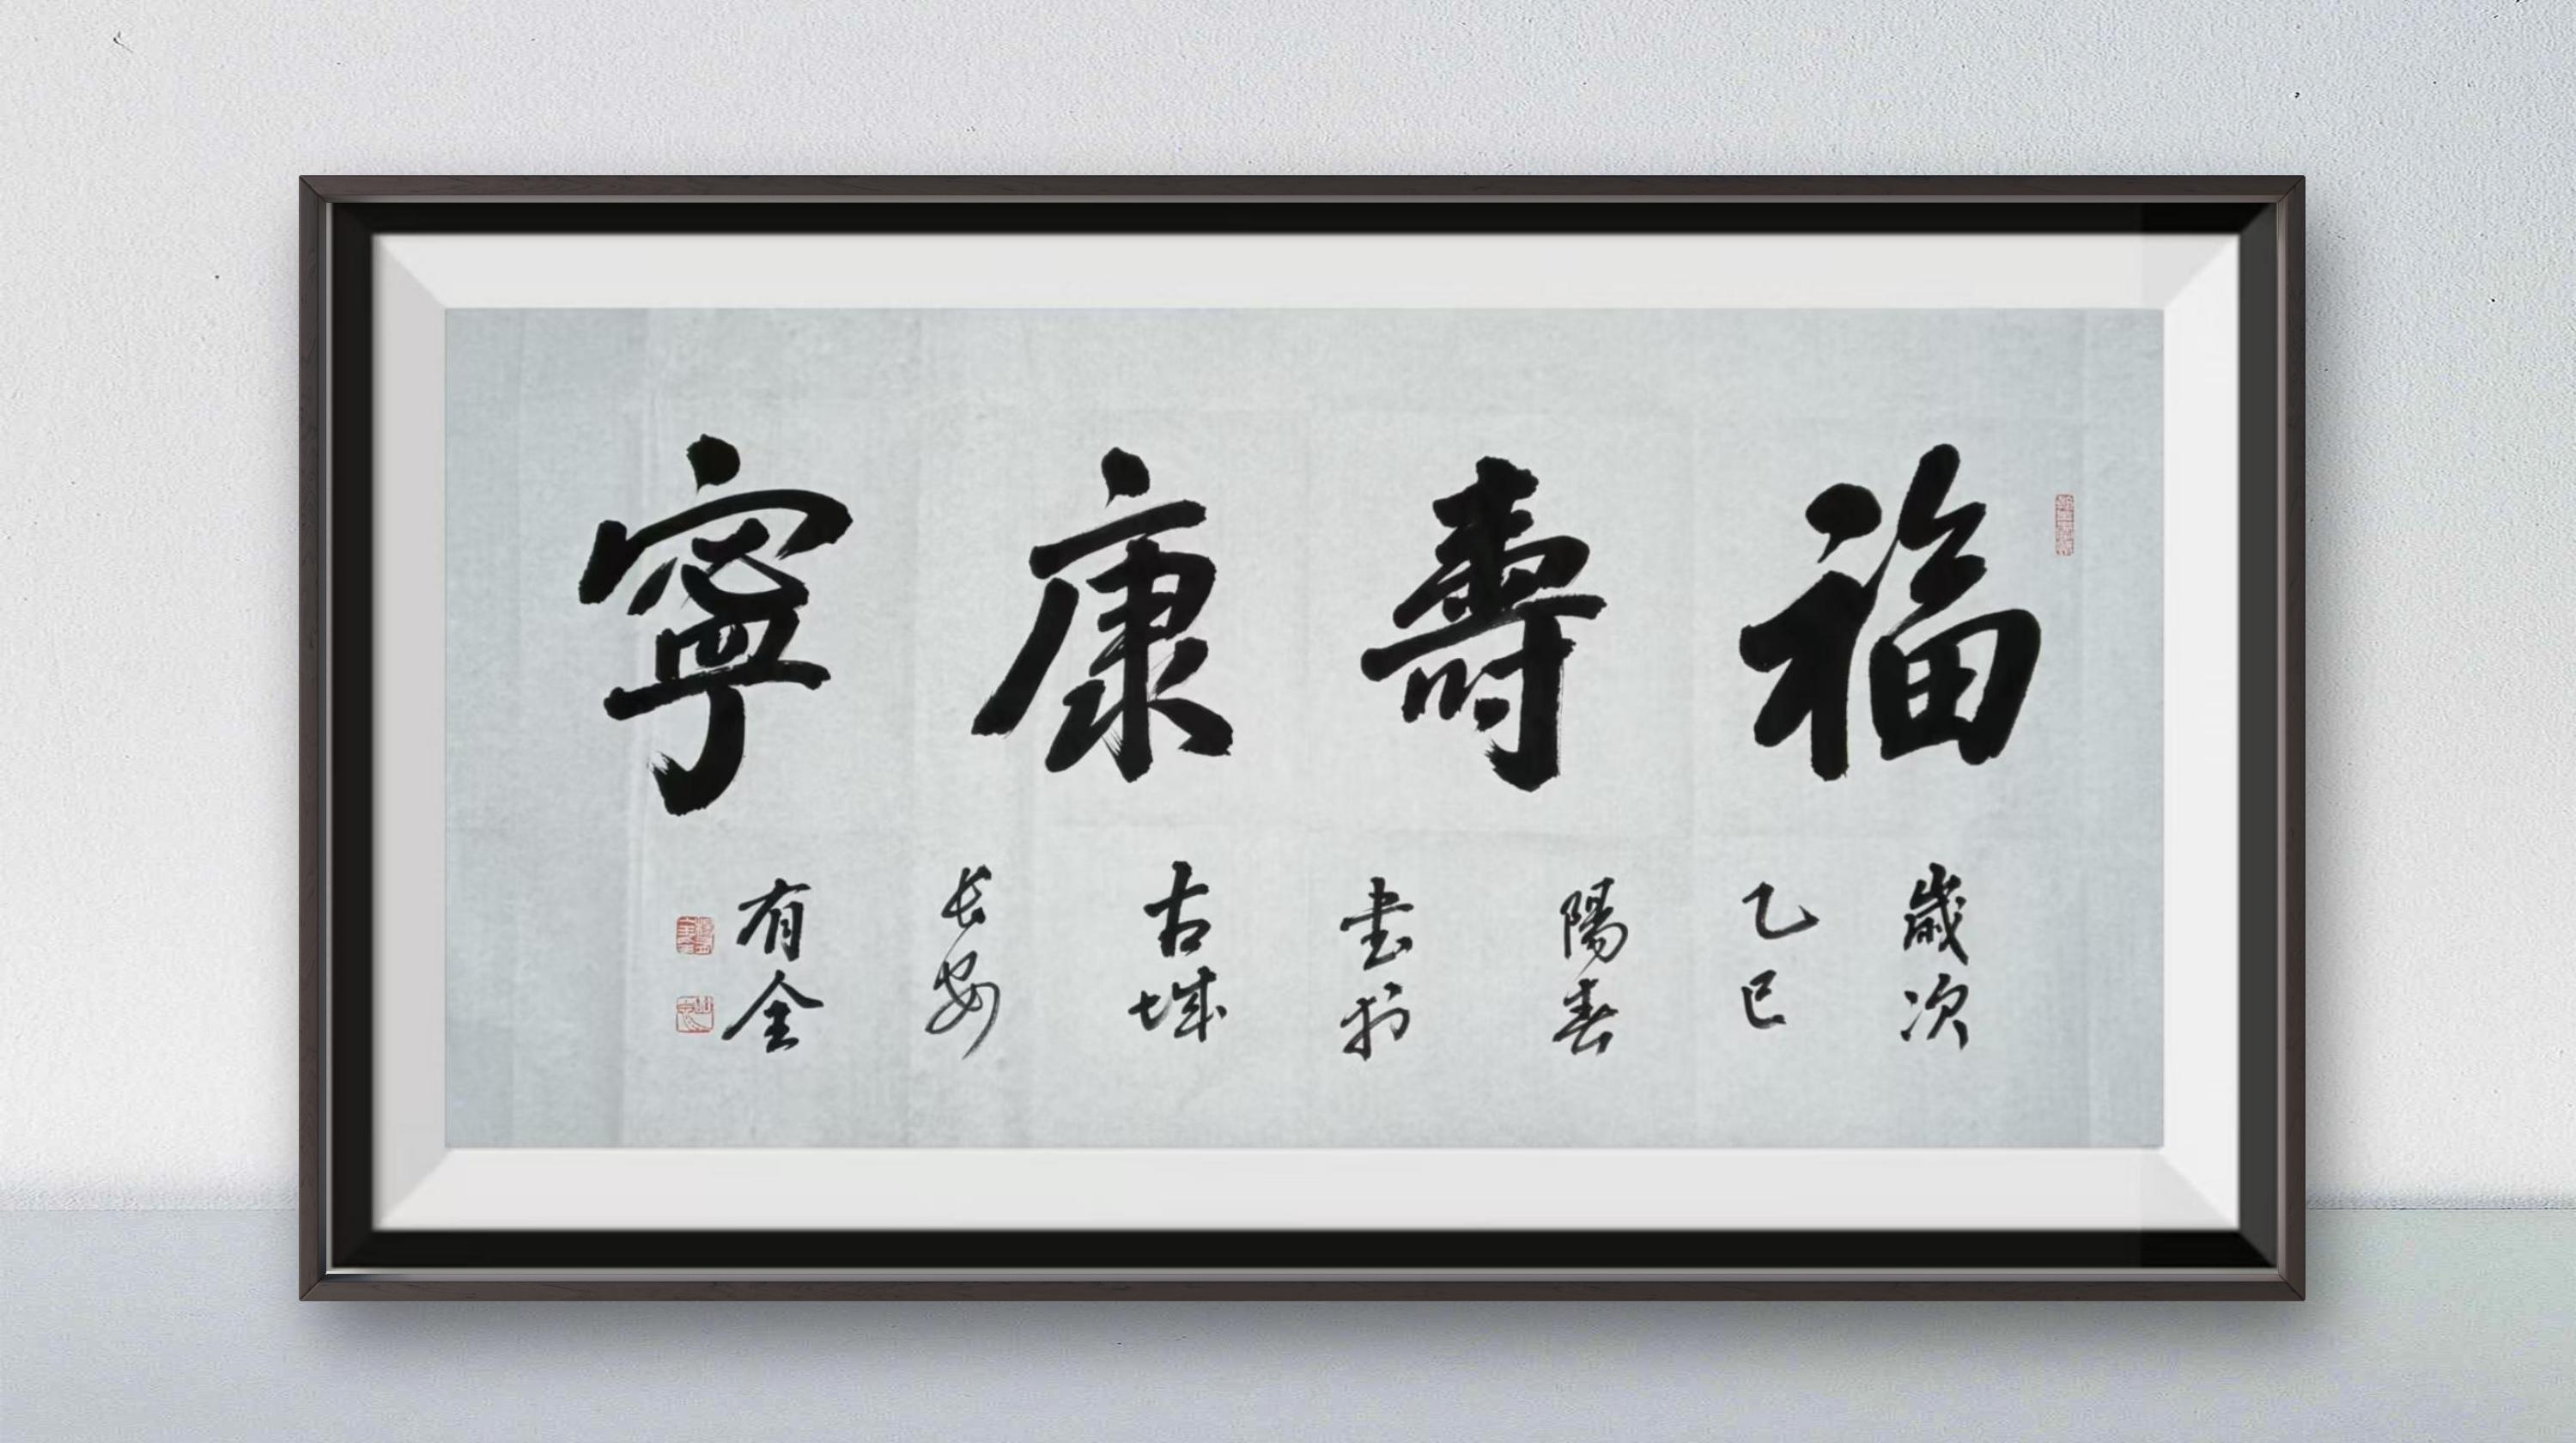 福壽康寧
歲次
乙巳
陽春
書於
古城
长安
有全